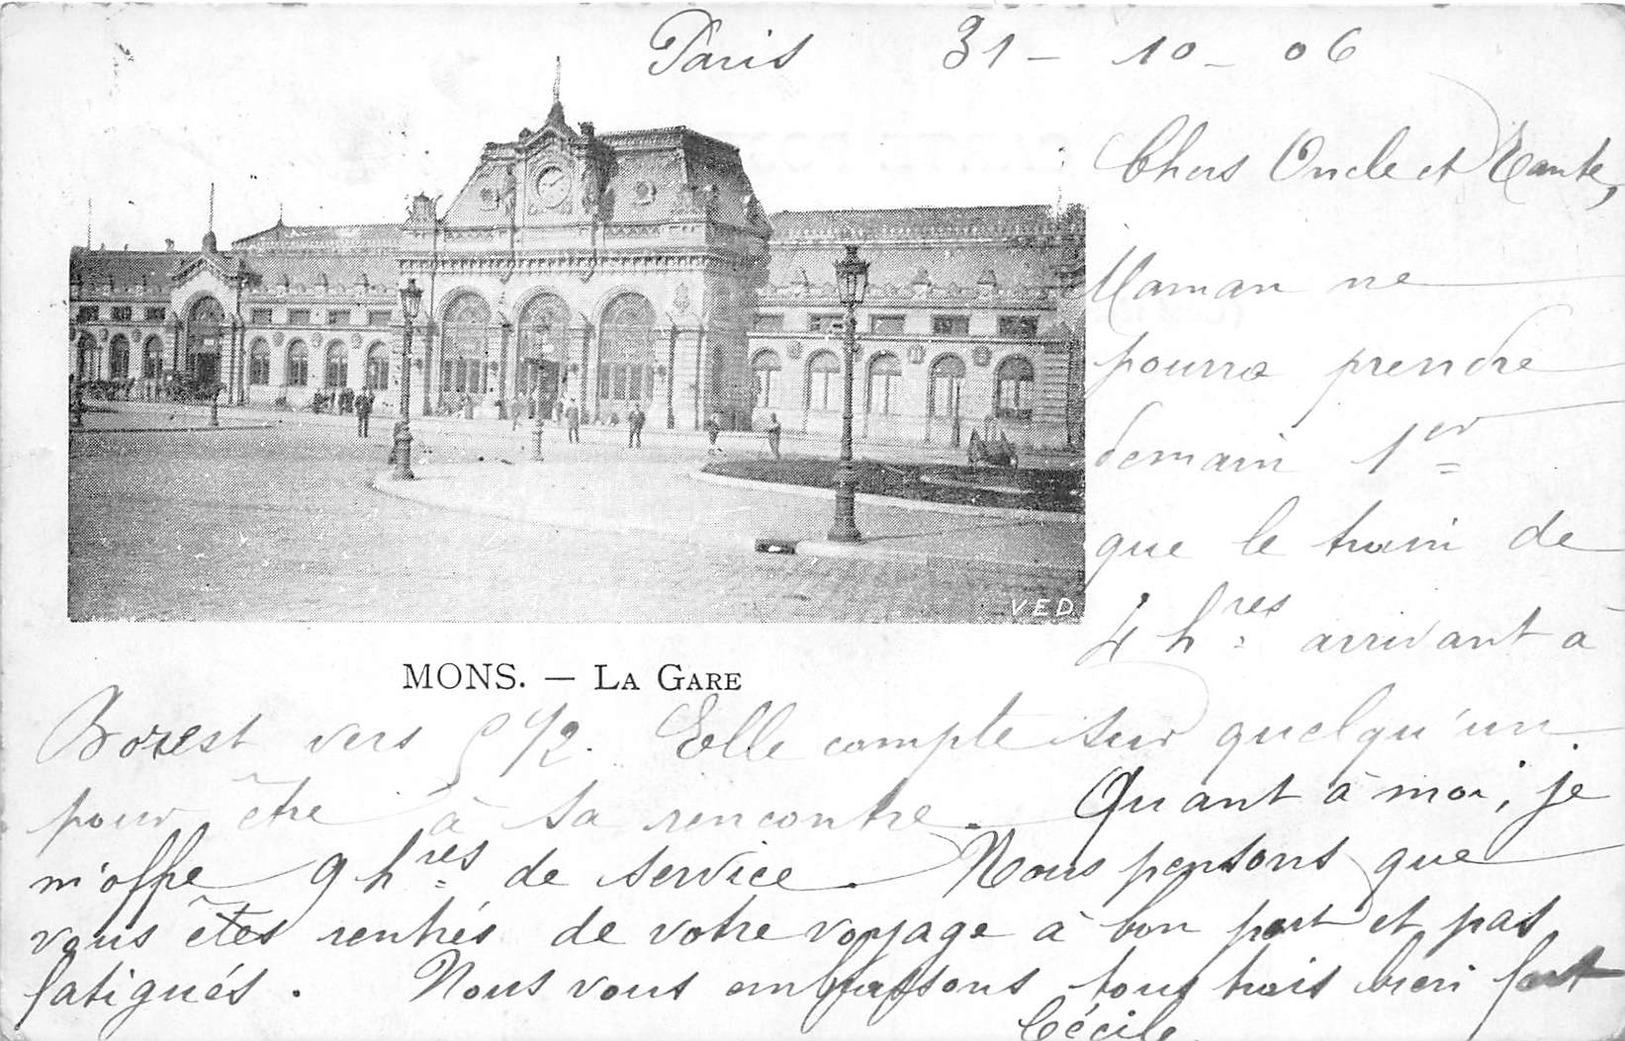 Paris 31 - 10 - 06
Chers Oncle et Tante,
Maman ne
pourra prendre
demain 1er
que le train de
4 hres arrivant à
V.E.D.
MONS. — LA GARE
Borest vers 5 1/2. Elle compte sur quelqu'un
pour être à sa rencontre. Quant à moi, je
m'offre 9 hres de service. Nous pensons que
vous êtes rentrés de votre voyage à bon port et pas
fatigués. Nous vous embrassons tous trois bien fort
Cécile